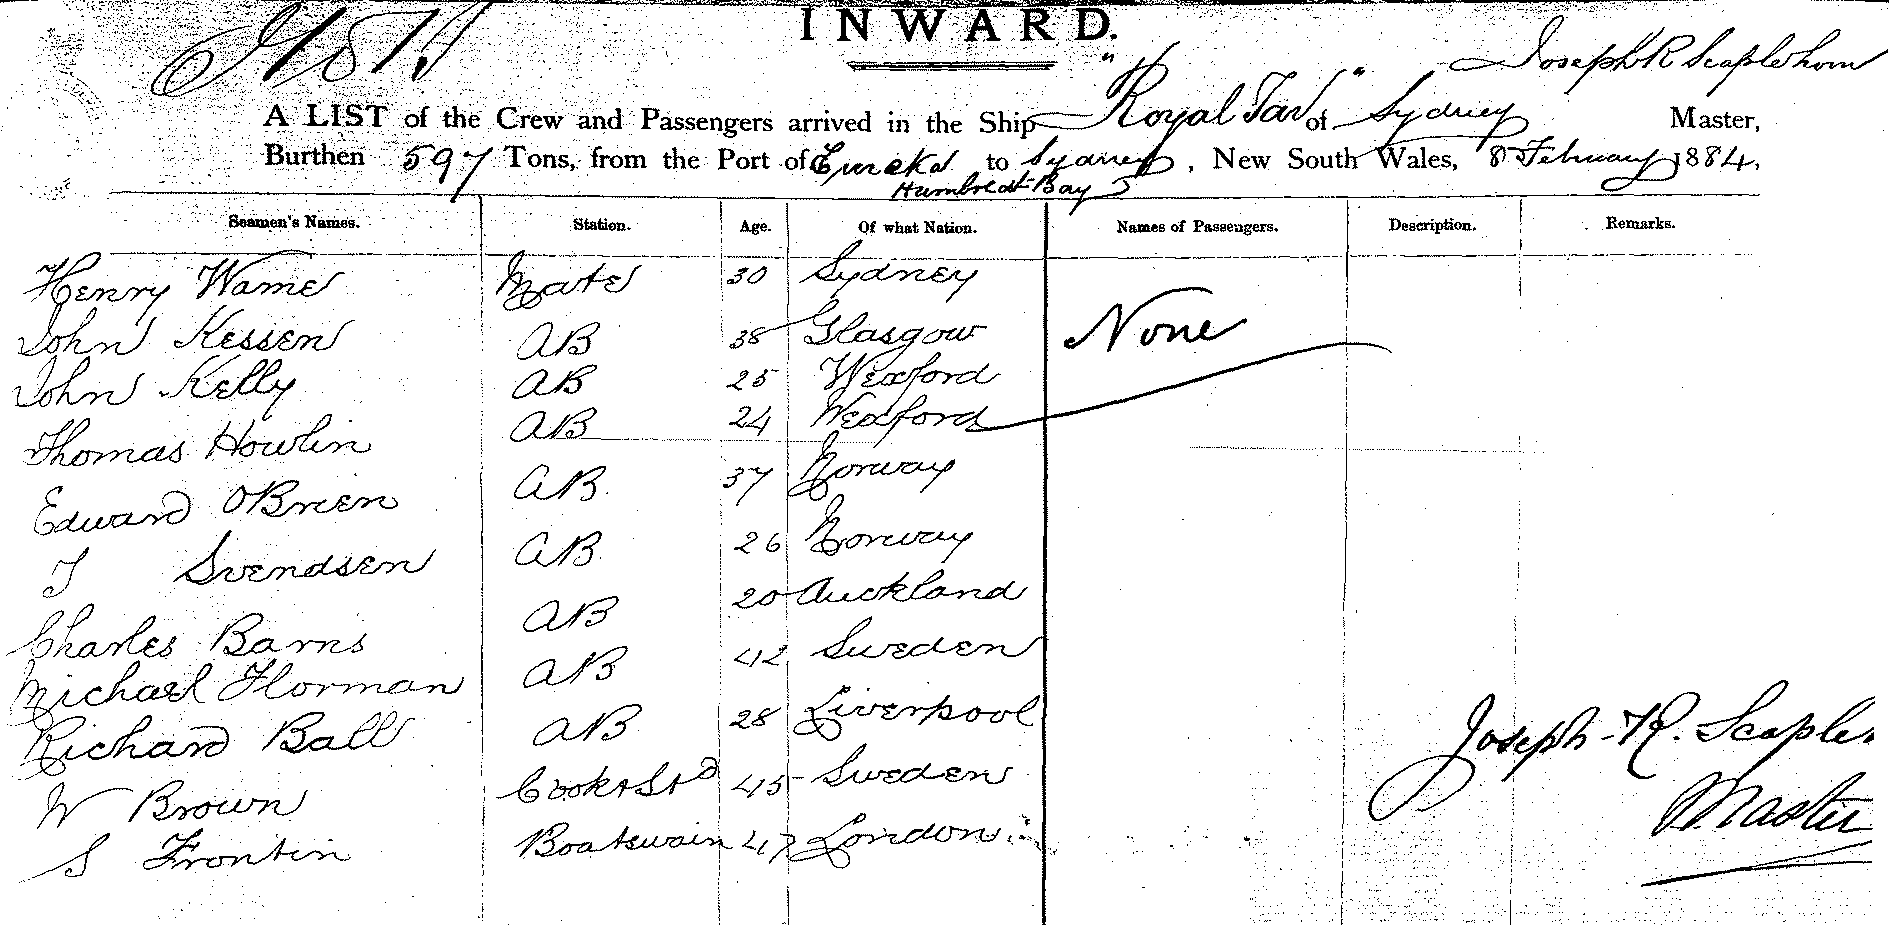 INWARD.
Joseph R Scaplehorn
A LIST of the Crew and Passengers arrived in the Ship "Royal Tar" of Sydney Master,
Burthen 597 Tons, from the Port of Eureka to Sydney, New South Wales, 8 February 1884.
Humboldt Bay
Seamen's Names. Station. Age. Of what Nation. Names of Passengers. Description. Remarks.
Henry Warne Mate 30 Sydney
John Kessen AB 38 Glasgow None
John Kelly AB 25 Wexford
Thomas Howlin AB 24 Wexford
Edward O'Brien AB. 37 Norway
J Svendsen AB 26 Norway
Charles Barns AB 20 Auckland
Michael Florman AB 42 Sweden
Richard Ball AB 28 Liverpool
W Brown Cook & Std 45 Sweden
S Frontin Boatswain 47 London
Joseph R. Scaple
Master